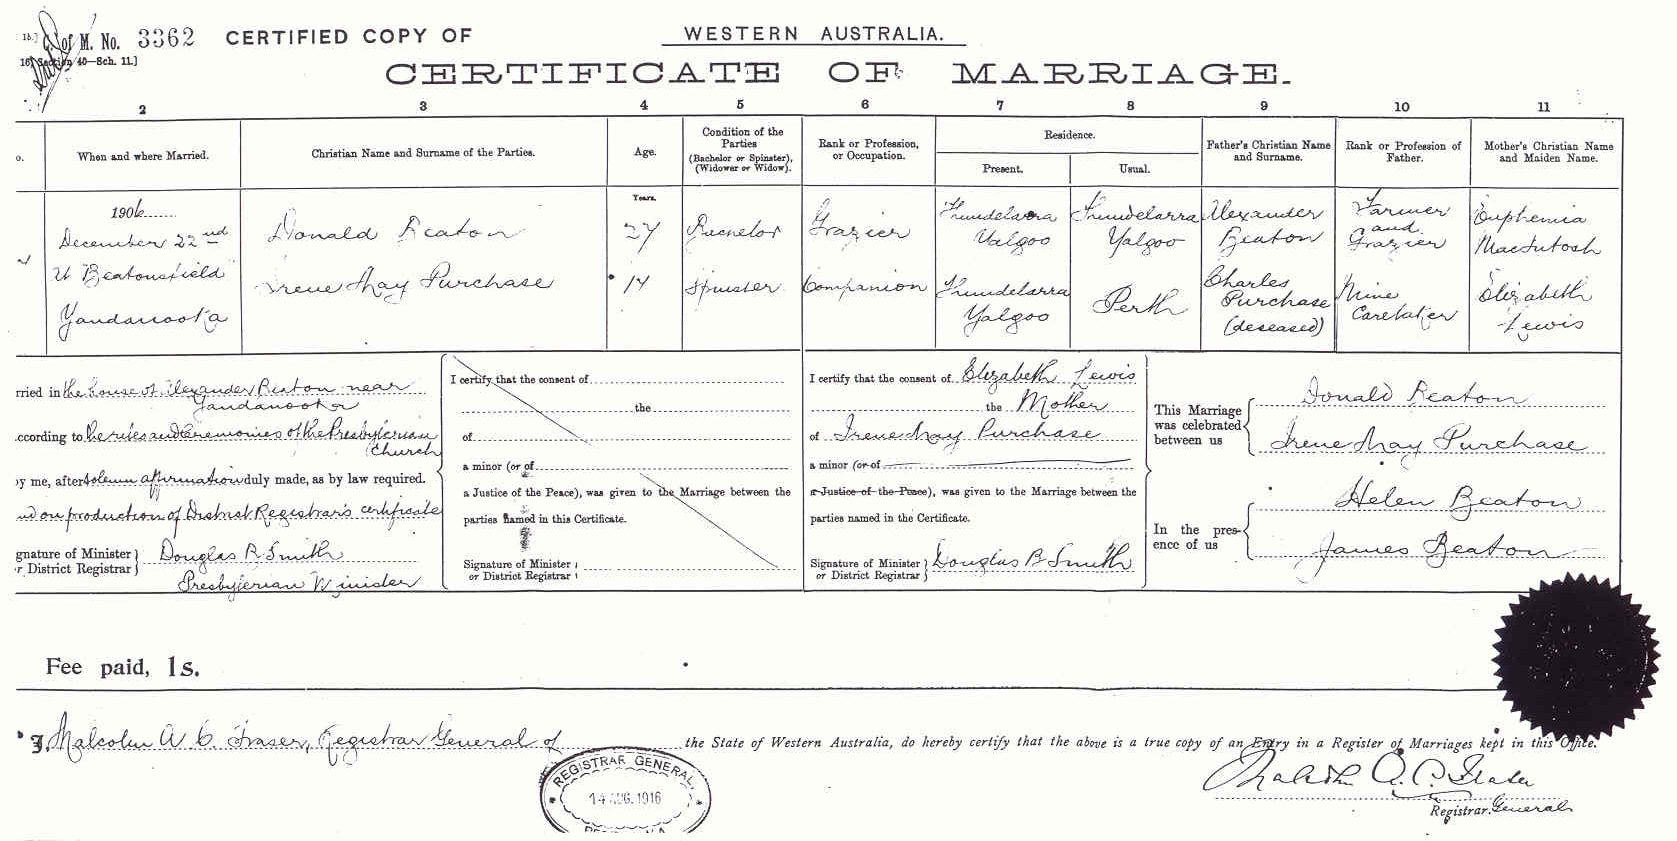 15.] C. of M. No. 3362 CERTIFIED COPY OF WESTERN AUSTRALIA.
16] Section 40—Sch. 11.]
CERTIFICATE OF MARRIAGE.
2 3 4 5 6 7 8 9 10 11
o. When and where Married. Christian Name and Surname of the Parties. Age. Condition of the Parties (Bachelor or Spinster), (Widower or Widow). Rank or Profession, or Occupation. Residence. Present. Usual. Father's Christian Name and Surname. Rank or Profession of Father. Mother's Christian Name and Maiden Name.
Years.
1906
December 22nd
at Beatonsfield
Yandanooka
Donald Beaton 27 Bachelor Grazier Thundelarra Yalgoo Thundelarra Yalgoo Alexander Beaton Farmer and Grazier Euphemia MacIntosh
Irene May Purchase Spinster Companion Thundelarra Yalgoo Perth Charles Purchase (deceased) Mine Caretaker Elizabeth Lewis
rried in the house of Alexander Beaton near
Yandanooka
ccording to the rites and Ceremonies of the Presbyterian
Church
y me, after solemn affirmation duly made, as by law required.
nd on production of District Registrar's certificate
gnature of Minister Douglas B. Smith
r District Registrar Presbyterian Minister
I certify that the consent of
the
of
a minor (or of
a Justice of the Peace), was given to the Marriage between the
parties named in this Certificate.
Signature of Minister
or District Registrar
I certify that the consent of Elizabeth Lewis
the Mother
of Irene May Purchase
a minor (or of
a Justice of the Peace), was given to the Marriage between the
parties named in the Certificate.
Signature of Minister Douglas B Smith
or District Registrar
This Marriage was celebrated between us
Donald Beaton
Irene May Purchase
In the presence of us
Helen Beaton
James Beaton
Fee paid, 1s.
I, Malcolm A. C. Fraser, Registrar General of the State of Western Australia, do hereby certify that the above is a true copy of an Entry in a Register of Marriages kept in this Office.
REGISTRAR GENERAL,
14 AUG. 1916
Malcolm A. C. Fraser
Registrar General